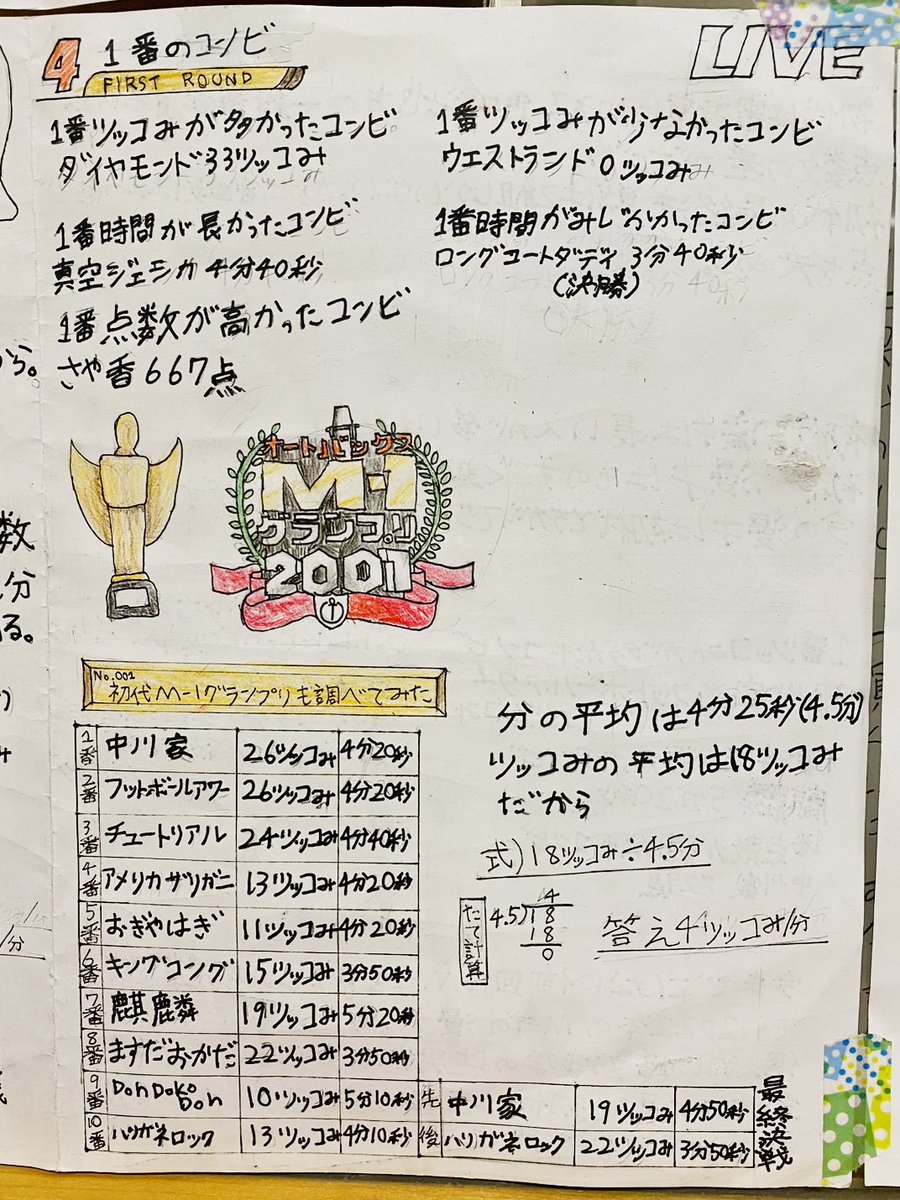 4 1番のコンビ
FIRST ROUND
LIVE
1番ツッコみが多かったコンビ
ダイヤモンド33ツッコみ
1番ツッコみが少なかったコンビ
ウエストランド0ツッコみ
1番時間が長かったコンビ
真空ジェシカ4分40秒
1番時間がみじかかったコンビ
ロングコートダディ3分40秒
(決勝)
1番点数が高かったコンビ
さや香667点
オートバックス
M-1
グランプリ
2001
No.002
初代M-1グランプリも調べてみた
1番 中川家 26ツッコみ 4分20秒
2番 フットボールアワー 26ツッコみ 4分20秒
3番 チュートリアル 24ツッコみ 4分40秒
4番 アメリカザリガニ 13ツッコみ 4分20秒
5番 おぎやはぎ 11ツッコみ 4分20秒
6番 キングコング 15ツッコみ 3分50秒
7番 麒麟 19ツッコみ 5分20秒
8番 ますだおかだ 22ツッコみ 3分50秒
9番 DonDokoDon 10ツッコみ 5分10秒
10番 ハリガネロック 13ツッコみ 4分10秒
先 中川家 19ツッコみ 4分50秒
後 ハリガネロック 22ツッコみ 3分50秒
最終決戦
分の平均は4分25秒(4.5分)
ツッコみの平均は18ツッコみ
だから
式)18ツッコみ÷4.5分
たて計算
4
4.5)18
18
0
答え4ツッコみ/分
数
分
る。